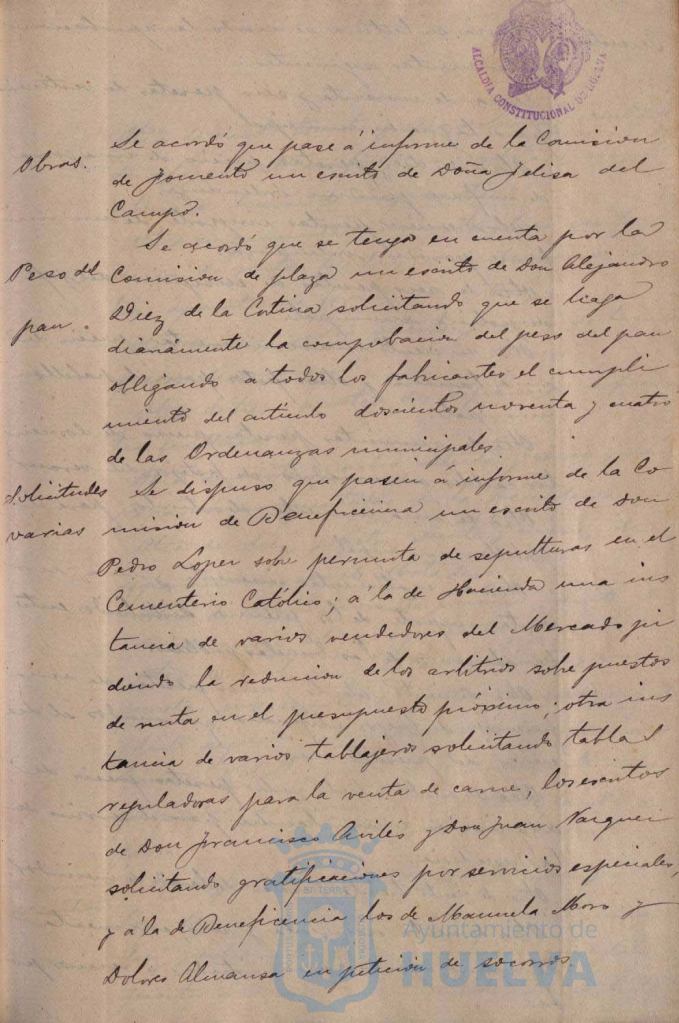 ALCALDIA CONSTITUCIONAL DE HUELVA
Obras.
Se acordó que pase á informe de la Comision
de Fomento un escrito de Doña Felisa del
Campo.
Peso del
pan.
Se acordó que se tenga en cuenta por la
Comision de plaza un escrito de Don Alejandro
Diez de la Cortina solicitando que se haga
diariamente la comprobacion del peso del pan
obligando a todos los fabricantes el cumpli
miento del articulo doscientos noventa y cuatro
de las Ordenanzas municipales.
Solicitudes
varias
Se dispuso que pasen á informe de la Co
mision de Beneficencia un escrito de Don
Pedro Lopez sobre permuta de sepulturas en el
Cementerio Católico; á la de Hacienda una ins
tancia de varios vendedores del Mercado pi
diendo la reduccion de los arbitrios sobre puestos
de venta en el presupuesto próximo; otra ins
tancia de varios tablajeros solicitando tablas
reguladoras para la venta de carne, los escritos
de Don Francisco Avilés y Don Juan Vazquez
solicitando gratificaciones por servicios especiales,
y á la de Beneficencia los de Manuela Moro y
Dolores Almansa en peticion de socorros.
Ayuntamiento de
HUELVA